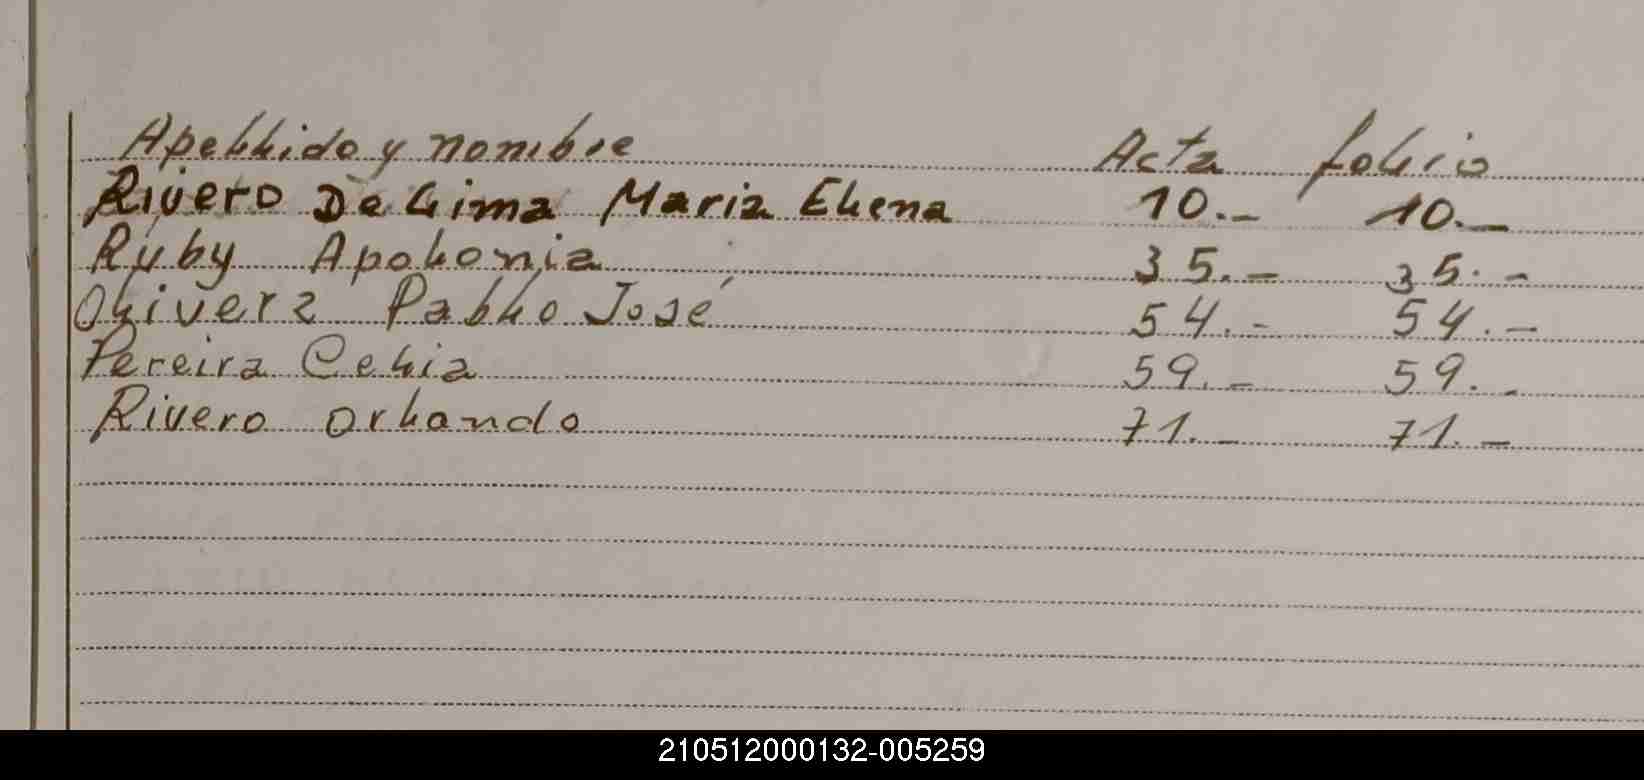 Apellido y nombre Acta folio
Rivero De Lima Maria Elena 10.- 10.-
Ruby Apolonia 35.- 35.-
Olivera Pablo José 54.- 54.-
Pereira Celia 59.- 59.-
Rivero orlando 71.- 71.-
210512000132-005259